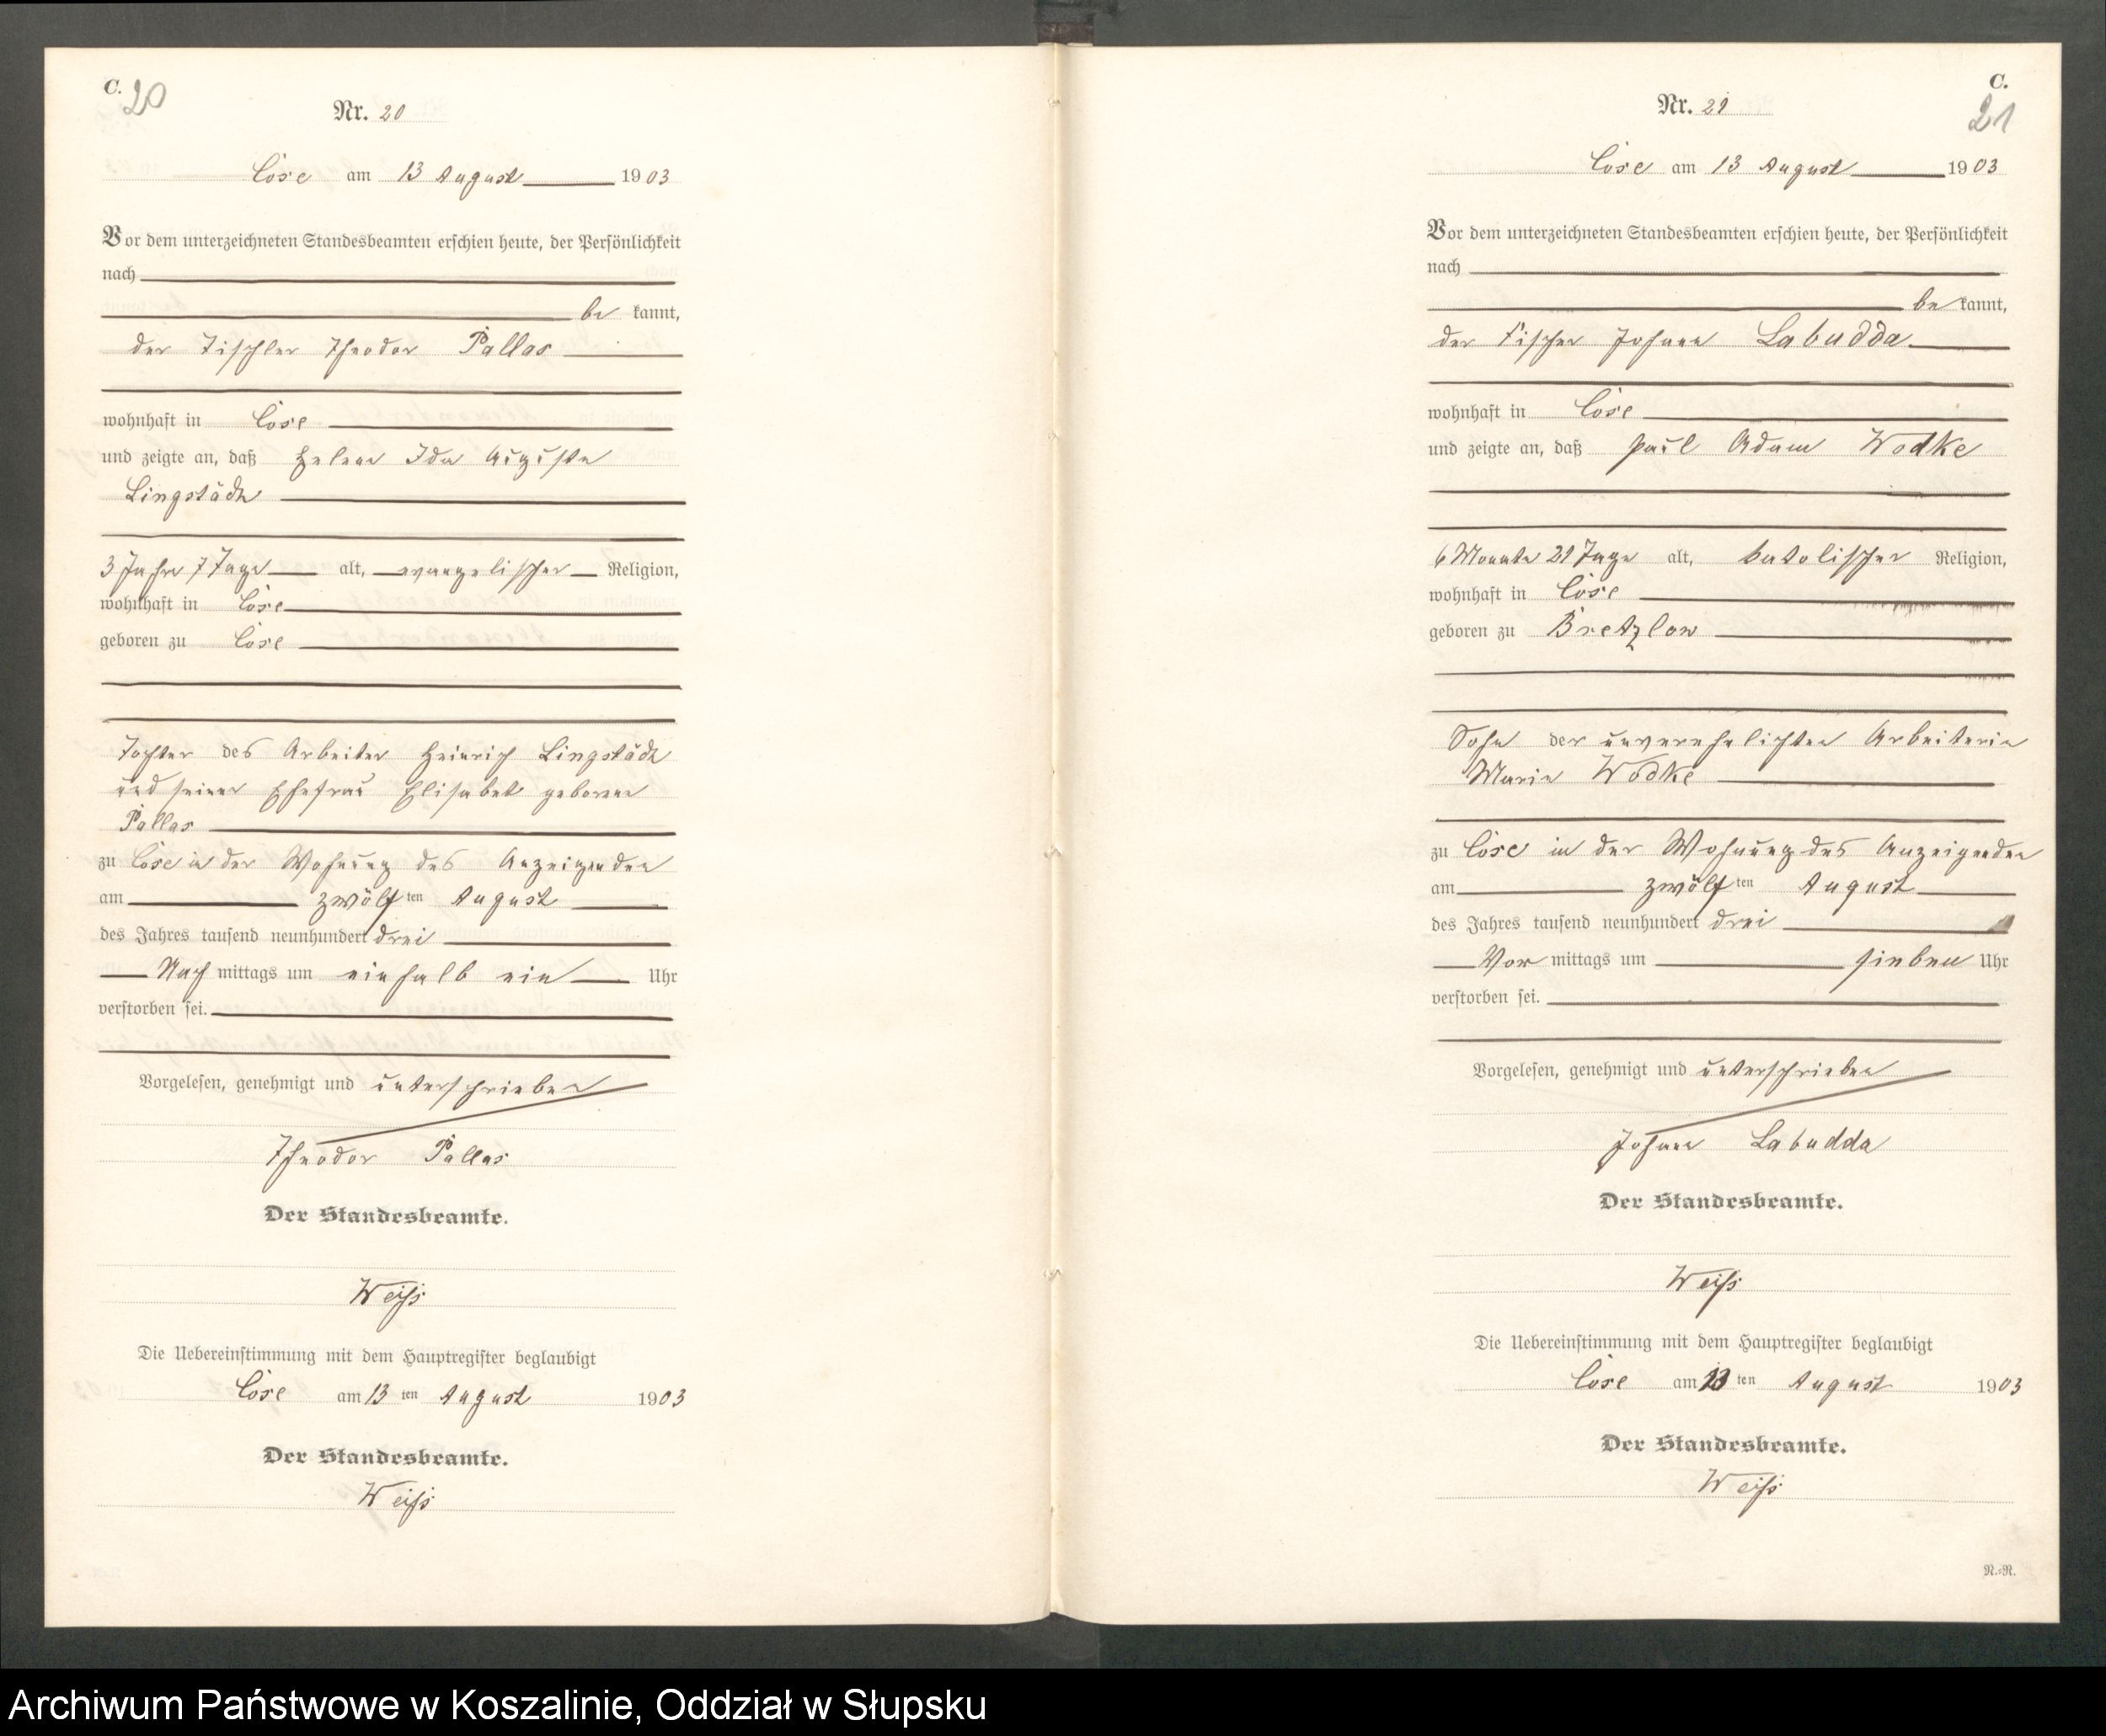 C. 20
Nr. 20
Cöse am 13 August 1903
Vor dem unterzeichneten Standesbeamten erschien heute, der Persönlichkeit
nach
be kannt,
der Tischler Theodor Pallas
wohnhaft in Cöse
und zeigte an, daß Helene Ida Auguste
Lingstädt
3 Jahre 7 Tage alt, evangelischer Religion,
wohnhaft in Cöse
geboren zu Cöse
Tochter des Arbeiter Heinrich Lingstädt
und seiner Ehefrau Elisabet geborene
Pallas
zu Cöse in der Wohnung des Anzeigenden
am zwölf ten August
des Jahres tausend neunhundert drei
Nach mittags um einhalb ein Uhr
verstorben sei.
Vorgelesen, genehmigt und unterschrieben
Theodor Pallas
Der Standesbeamte.
Weiß
Die Uebereinstimmung mit dem Hauptregister beglaubigt
Cöse am 13 ten August 1903
Der Standesbeamte.
Weiß
C.
21
Nr. 21
Cöse am 13 August 1903
Vor dem unterzeichneten Standesbeamten erschien heute, der Persönlichkeit
nach
be kannt,
der Fischer Johann Labudda
wohnhaft in Cöse
und zeigte an, daß Paul Adam Wodke
6 Monate 21 Tage alt, katolischer Religion,
wohnhaft in Cöse
geboren zu Bretzlow
Sohn der unverehelichten Arbeiterin
Marie Wodke
zu Cöse in der Wohnung des Anzeigenden
am zwölf ten August
des Jahres tausend neunhundert drei
Vor mittags um sieben Uhr
verstorben sei.
Vorgelesen, genehmigt und unterschrieben
Johann Labudda
Der Standesbeamte.
Weiß
Die Uebereinstimmung mit dem Hauptregister beglaubigt
Cöse am 13 ten August 1903
Der Standesbeamte.
Weiß
N.=R.
Archiwum Państwowe w Koszalinie, Oddział w Słupsku